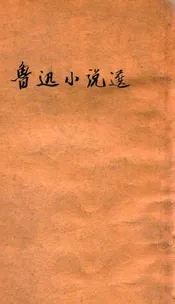 鲁迅小说选